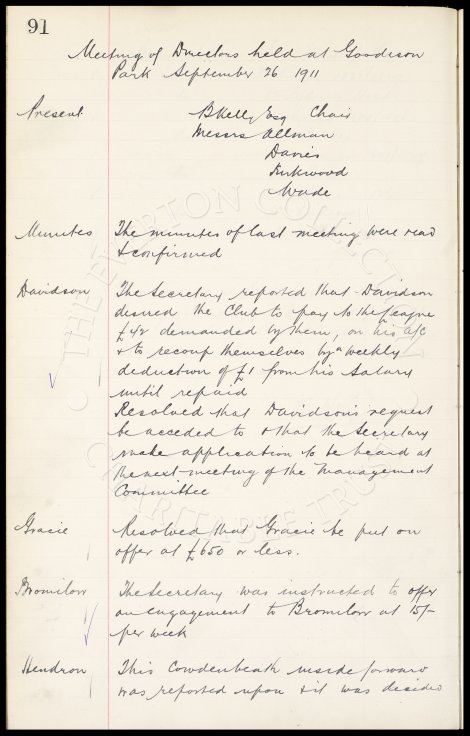 91
Meeting of Directors held at Goodison
Park September 26 1911
Present BKelly Esq Chair
Messrs Allman
Davies
Kirkwood
Wade
Minutes The minutes of last meeting were read
& confirmed
Davidson The Secretary reported that Davidson
desired the Club to pay to the League
£42 demanded by them, on his a/c
& to recoup themselves by a weekly
deduction of £1 from his salary
until repaid
Resolved that Davidson's request
be acceded to & that the Secretary
make application to be heard at
the next meeting of the Management
Committee
Gracie Resolved that Gracie be put on
offer at £650 or less.
Bromilow The Secretary was instructed to offer
an engagement to Bromilow at 15/-
per week
Hendron This Cowdenbeath inside forward
was reported upon & it was decided
THE EVERTON COLLECTION
CHARITABLE TRUST